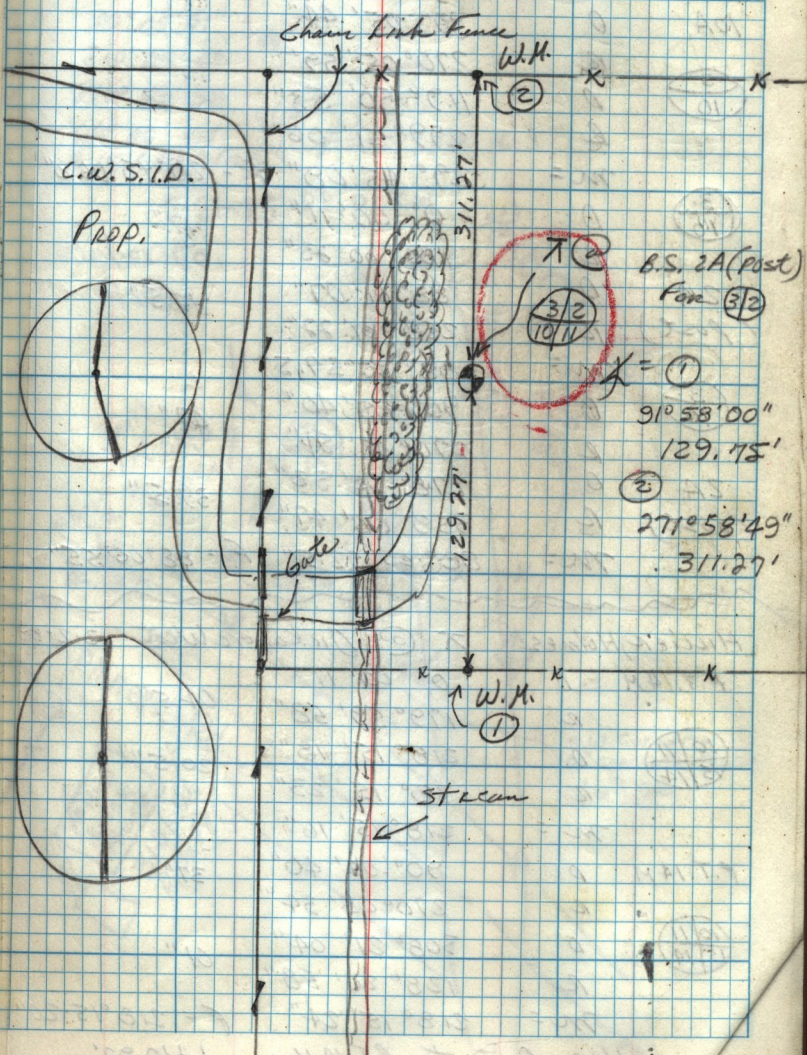 Chain Link Fence
W.M.
②
C.W.S.I.D.
Prop.
311.27'
π ②
3 2
10 11
B.S. 2A (post)
For 3 2
∡ = ①
91° 58' 00"
129.75'
②
271° 58' 49"
311.27'
129.27'
Gate
W.M.
①
Stream